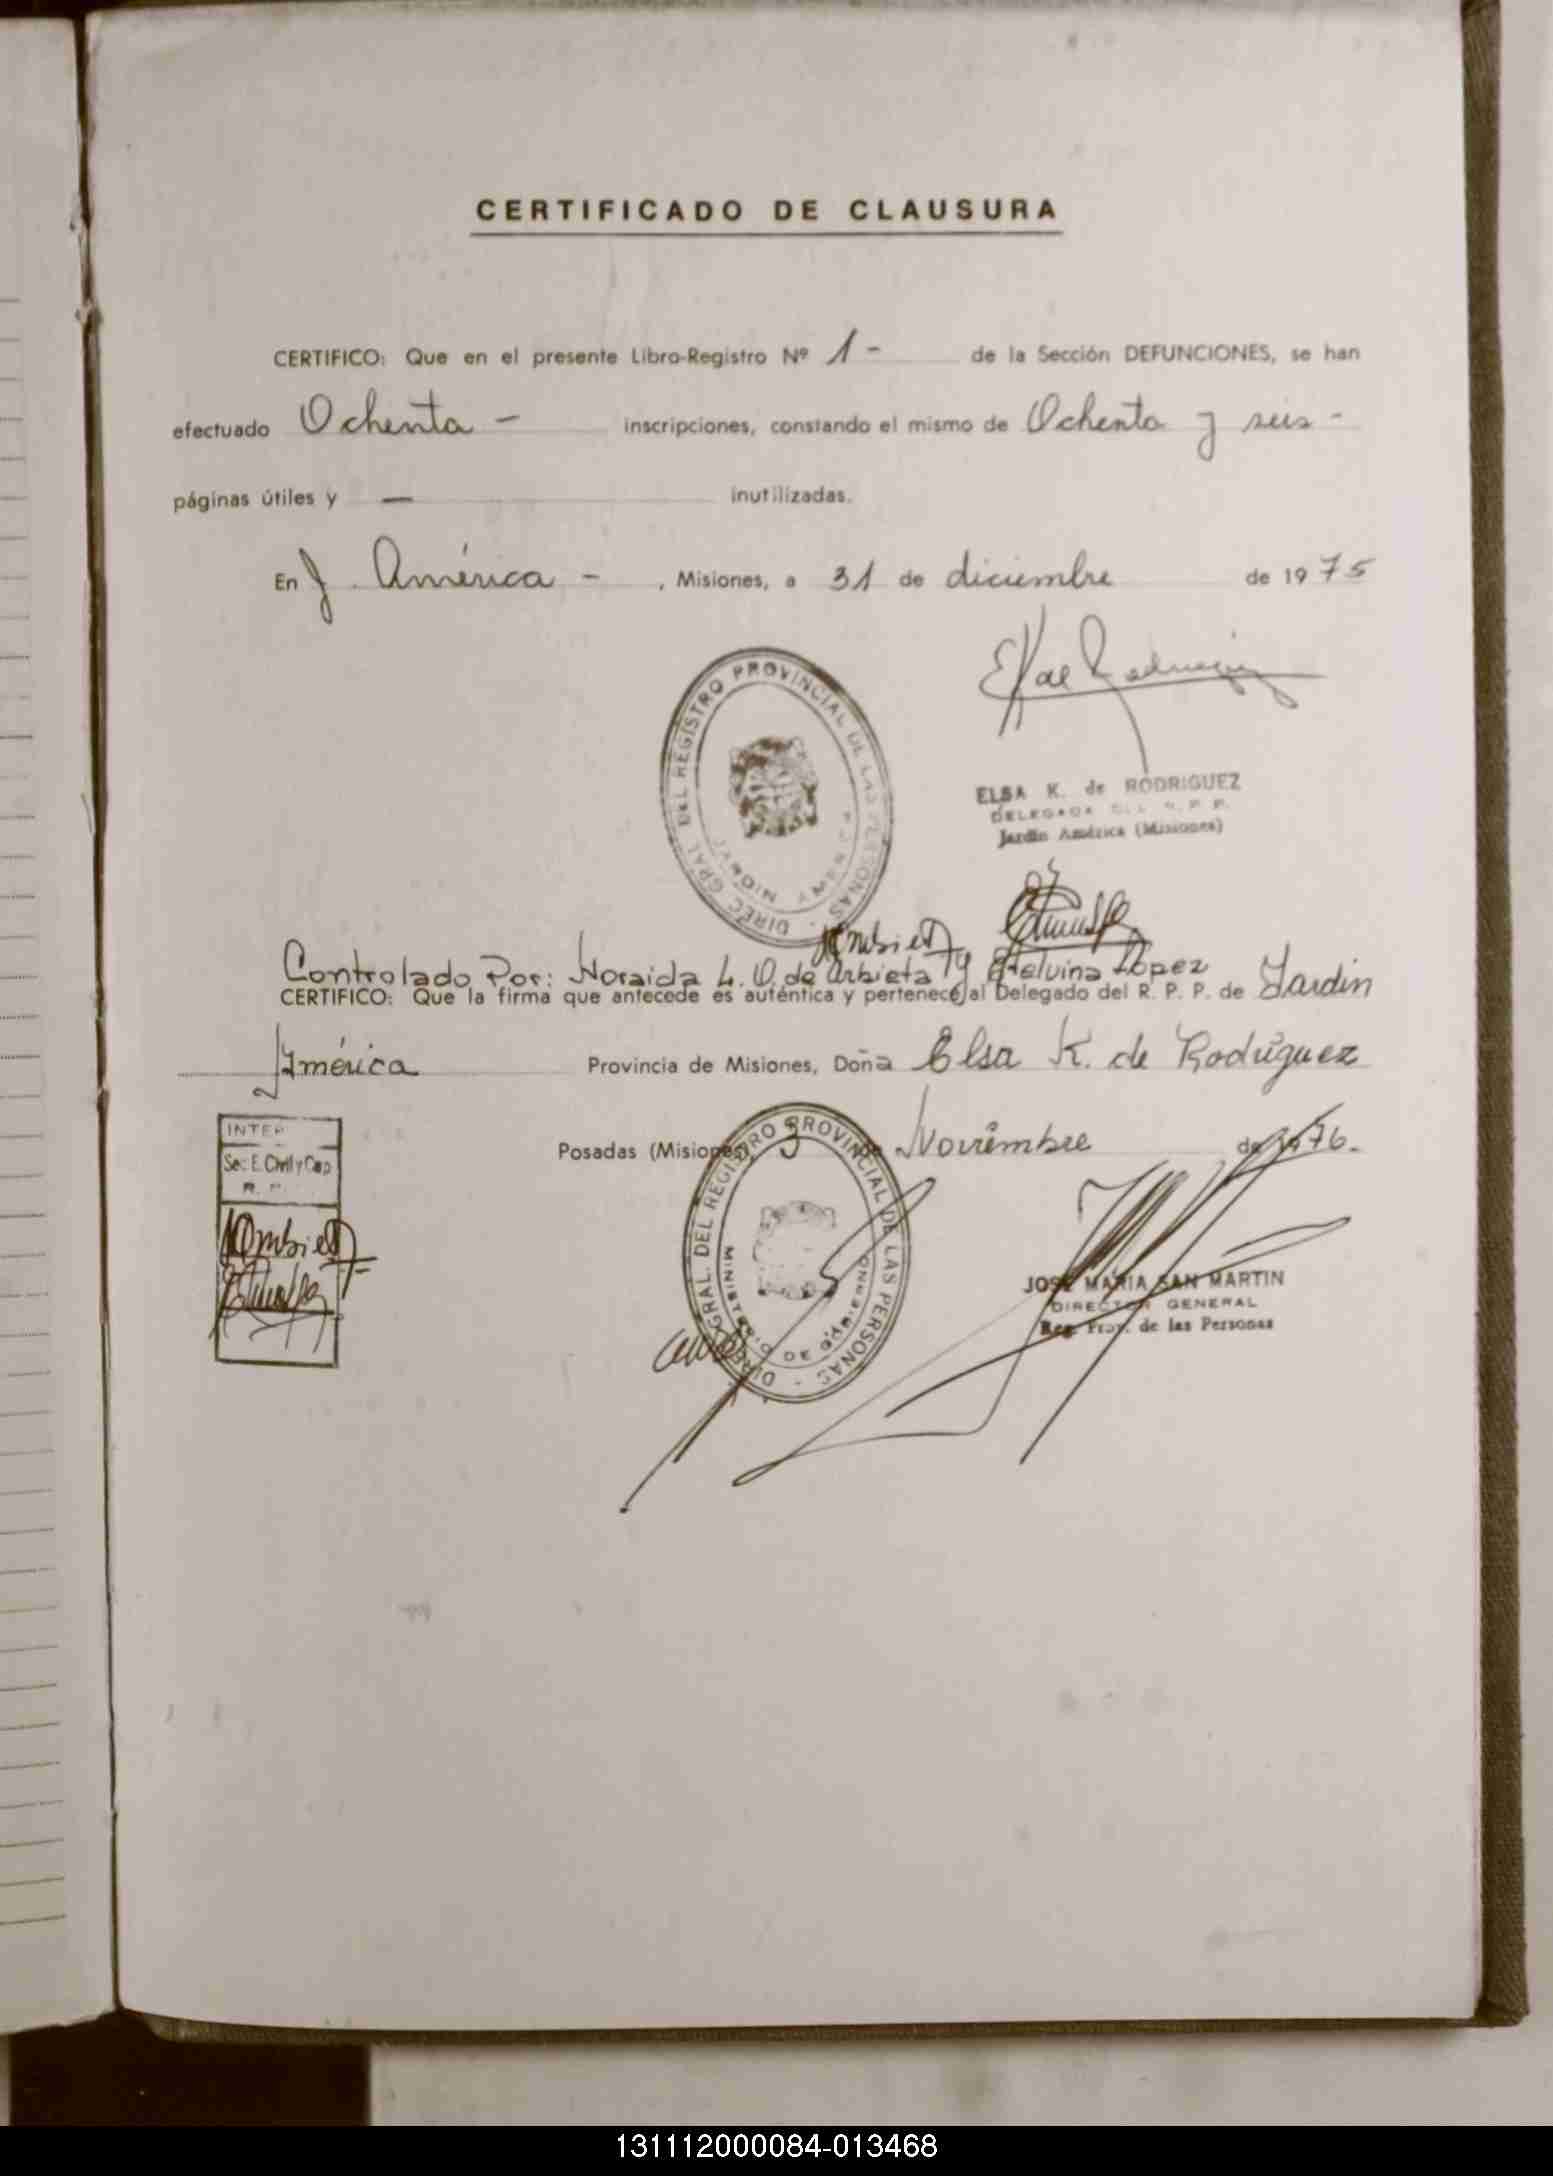 CERTIFICADO DE CLAUSURA
CERTIFICO: Que en el presente Libro-Registro Nº 1 - de la Sección DEFUNCIONES, se han
efectuado Ochenta - inscripciones, constando el mismo de Ochenta y seis -
páginas útiles y — inutilizadas.
En J. América - , Misiones, a 31 de diciembre de 1975
DIREC. GRAL. DEL REGISTRO PROVINCIAL DE LAS PERSONAS -
JARDIN AMERICA
ELSA K. de RODRIGUEZ
DELEGADA DEL R. P. P.
Jardín América (Misiones)
Controlado Por: Noraida L. O. de Arbieta y Etelvina López
CERTIFICO: Que la firma que antecede es auténtica y pertenece al Delegado del R. P. P. de Jardín
América Provincia de Misiones, Doña Elsa K. de Rodríguez
Posadas (Misiones), 3 de Noviembre de 1976.
INTER
Sec. E. Civil y Cap.
DIREC. GRAL. DEL REGISTRO PROVINCIAL DE LAS PERSONAS -
MINISTERIO DE GOBIERNO
JOSE MARIA SAN MARTIN
DIRECTOR GENERAL
Reg. Prov. de las Personas
131112000084-013468